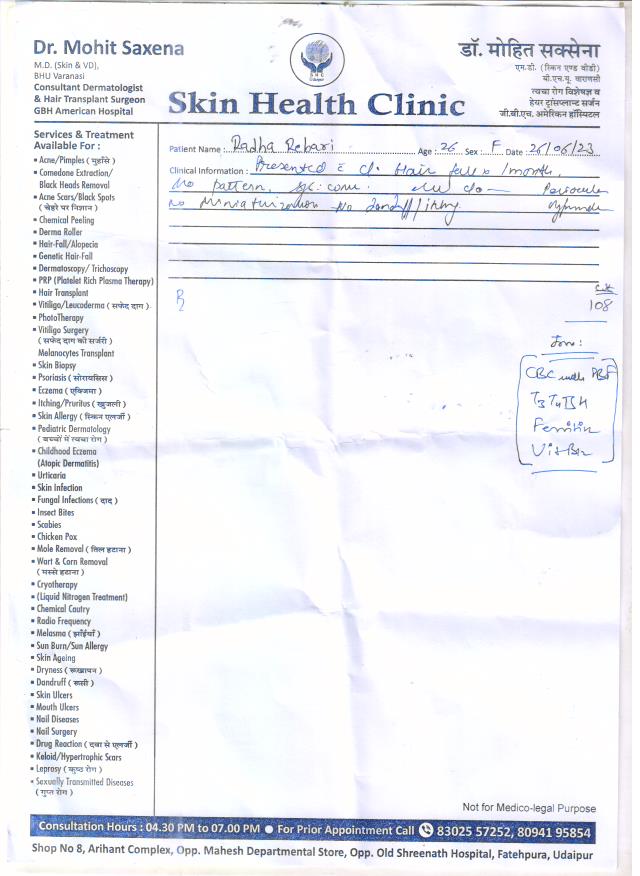 Dr. Mohit Saxena
M.D. (Skin & VD),
BHU Varanasi
Consultant Dermatologist
& Hair Transplant Surgeon
GBH American Hospital
S H C
Udaipur
डॉ. मोहित सक्सेना
एम.डी. (स्किन एण्ड वीडी)
बी.एच.यू. वाराणसी
त्वचा रोग विशेषज्ञ व
हेयर ट्रांसप्लान्ट सर्जन
जी.बी.एच. अमेरिकन हॉस्पिटल
Skin Health Clinic
Patient Name : Radha Rebari Age : 26 Sex : F Date : 26/06/23
Clinical Information : Presented c c/o Hair fall x 1 month,
No pattern, c/o Periocular
No Miniaturization No dandruff/itching.
108
CBC with PBF
T3 T4 TSH
Ferritin
Vit B12
Services & Treatment
Available For :
▪ Acne/Pimples ( मुहाँसे )
▪ Comedone Extraction/
Black Heads Removal
▪ Acne Scars/Black Spots
( चेहरे पर निशान )
▪ Chemical Peeling
▪ Derma Roller
▪ Hair-Fall/Alopecia
▪ Genetic Hair-Fall
▪ Dermatoscopy/ Trichoscopy
▪ PRP (Platelet Rich Plasma Therapy)
▪ Hair Transplant
▪ Vitiligo/Leucoderma ( सफेद दाग )
▪ PhotoTherapy
▪ Vitiligo Surgery
( सफेद दाग की सर्जरी )
Melanocytes Transplant
▪ Skin Biopsy
▪ Psoriasis ( सोरायसिस )
▪ Eczema ( एक्जिमा )
▪ Itching/Pruritus ( खुजली )
▪ Skin Allergy ( स्किन एलर्जी )
▪ Pediatric Dermatology
( बच्चों में त्वचा रोग )
▪ Childhood Eczema
(Atopic Dermatitis)
▪ Urticaria
▪ Skin Infection
▪ Fungal Infections ( दाद )
▪ Insect Bites
▪ Scabies
▪ Chicken Pox
▪ Mole Removal ( तिल हटाना )
▪ Wart & Corn Removal
( मस्से हटाना )
▪ Cryotherapy
▪ (Liquid Nitrogen Treatment)
▪ Chemical Cautry
▪ Radio Frequency
▪ Melasma ( झाँईयाँ )
▪ Sun Burn/Sun Allergy
▪ Skin Ageing
▪ Dryness ( रूखापन )
▪ Dandruff ( रूसी )
▪ Skin Ulcers
▪ Mouth Ulcers
▪ Nail Diseases
▪ Nail Surgery
▪ Drug Reaction ( दवा से एलर्जी )
▪ Keloid/Hypertrophic Scars
▪ Leprosy ( कुष्ठ रोग )
▪ Sexually Transmitted Diseases
( गुप्त रोग )
Not for Medico-legal Purpose
Consultation Hours : 04.30 PM to 07.00 PM ● For Prior Appointment Call 83025 57252, 80941 95854
Shop No 8, Arihant Complex, Opp. Mahesh Departmental Store, Opp. Old Shreenath Hospital, Fatehpura, Udaipur